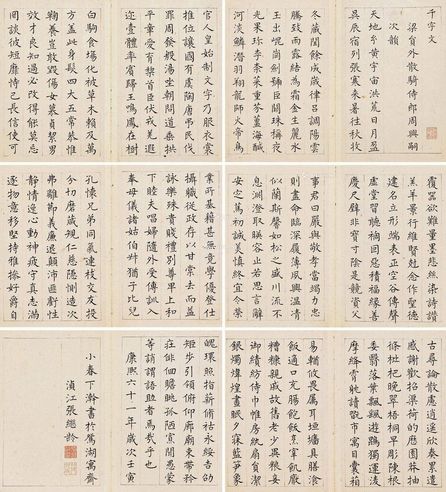 千字文
梁員外散騎侍郎周興嗣
次韻
天地玄黃宇宙洪荒日月盈
昃辰宿列張寒來暑往秋收
冬藏閏餘成歲律呂調陽雲
騰致雨露結為霜金生麗水
玉出崑岡劍號巨闕珠稱夜
光果珍李柰菜重芥薑海鹹
河淡鱗潛羽翔龍師火帝鳥
官人皇始制文字乃服衣裳
推位讓國有虞陶唐弔民伐
罪周發殷湯坐朝問道垂拱
平章愛育黎首臣伏戎羌遐
邇壹體率賓歸王鳴鳳在樹
白駒食場化被草木賴及萬
方蓋此身髮四大五常恭惟
鞠養豈敢毀傷女慕貞絜男
效才良知過必改得能莫忘
罔談彼短靡恃己長信使可
覆器欲難量墨悲絲染詩讚
羔羊景行維賢剋念作聖德
建名立形端表正空谷傳聲
虛堂習聽禍因惡積福緣善
慶尺璧非寶寸陰是競資父
事君曰嚴與敬孝當竭力忠
則盡命臨深履薄夙興溫凊
似蘭斯馨如松之盛川流不
息淵澄取映容止若思言辭
安定篤初誠美慎終宜令榮
業所基籍甚無竟學優登仕
攝職從政存以甘棠去而益
詠樂殊貴賤禮別尊卑上和
下睦夫唱婦隨外受傅訓入
奉母儀諸姑伯叔猶子比兒
孔懷兄弟同氣連枝交友投
分切磨箴規仁慈隱惻造次
弗離節義廉退顛沛匪虧性
靜情逸心動神疲守真志滿
逐物意移堅持雅操好爵自
古尋論散慮逍遙欣奏累遣
慼謝歡招渠荷的歷園莽抽
條枇杷晚翠梧桐早凋陳根
委翳落葉飄颻遊鵾獨運凌
摩絳霄耽讀翫市寓目囊箱
易輶攸畏屬耳垣牆具膳飡
飯適口充腸飽飫烹宰飢厭
糟糠親戚故舊老少異糧妾
御績紡侍巾帷房紈扇員潔
銀燭煒煌晝眠夕寐藍筍象
魄環照指薪脩祜永綏吉劭
矩步引領俯仰廊廟束帶矜
莊徘徊瞻眺孤陋寡聞愚蒙
等誚謂語助者焉哉乎也
康熙六十一年歲次壬寅
小春下澣書於鴛湖寓齋
湞江張繼齡